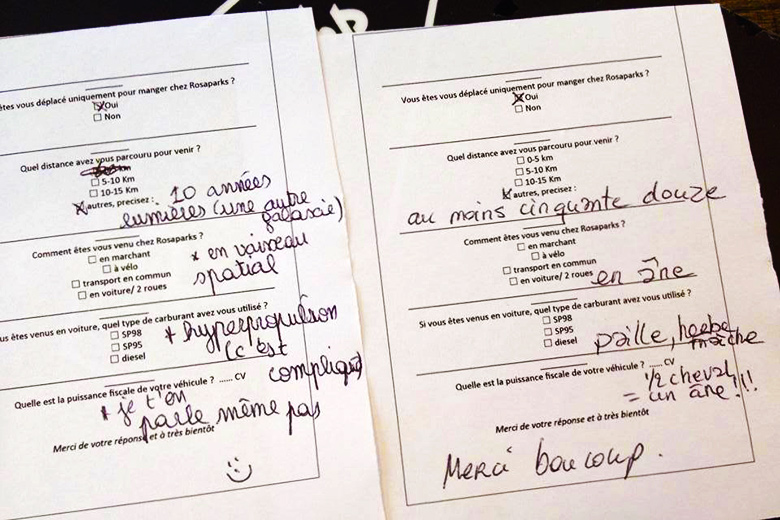 êtes vous déplacé uniquement pour manger chez Rosaparks ?
Oui
Non
Quel distance avez vous parcouru pour venir ?
5-10 Km
10-15 Km
autres, précisez : 10 années
lumières (une autre
galaxie)
Comment êtes vous venu chez Rosaparks ?
en marchant
à vélo
transport en commun
en voiture/ 2 roues
* en vaisseau
spatial
us êtes venus en voiture, quel type de carburant avez vous utilisé ?
SP98
SP95
diesel
* hyperpropulsion
(c'est
compliqué)
Quelle est la puissance fiscale de votre véhicule ? ...... CV
* je t'en
parle même pas
Merci de votre réponse et à très bientôt
Vous êtes vous déplacé uniquement pour manger chez Rosaparks ?
Oui
Non
Quel distance avez vous parcouru pour venir ?
0-5 km
5-10 Km
10-15 Km
autres, précisez :
au moins cinquante douze
Comment êtes vous venu chez Rosaparks ?
en marchant
à vélo
transport en commun
en voiture/ 2 roues en âne
Si vous êtes venus en voiture, quel type de carburant avez vous utilisé ?
SP98
SP95
diesel
paille, herbe
mâche
Quelle est la puissance fiscale de votre véhicule ? ...... CV
1/2 cheval
= un âne !!!
Merci de votre réponse et à très bientôt
Merci boucoup.